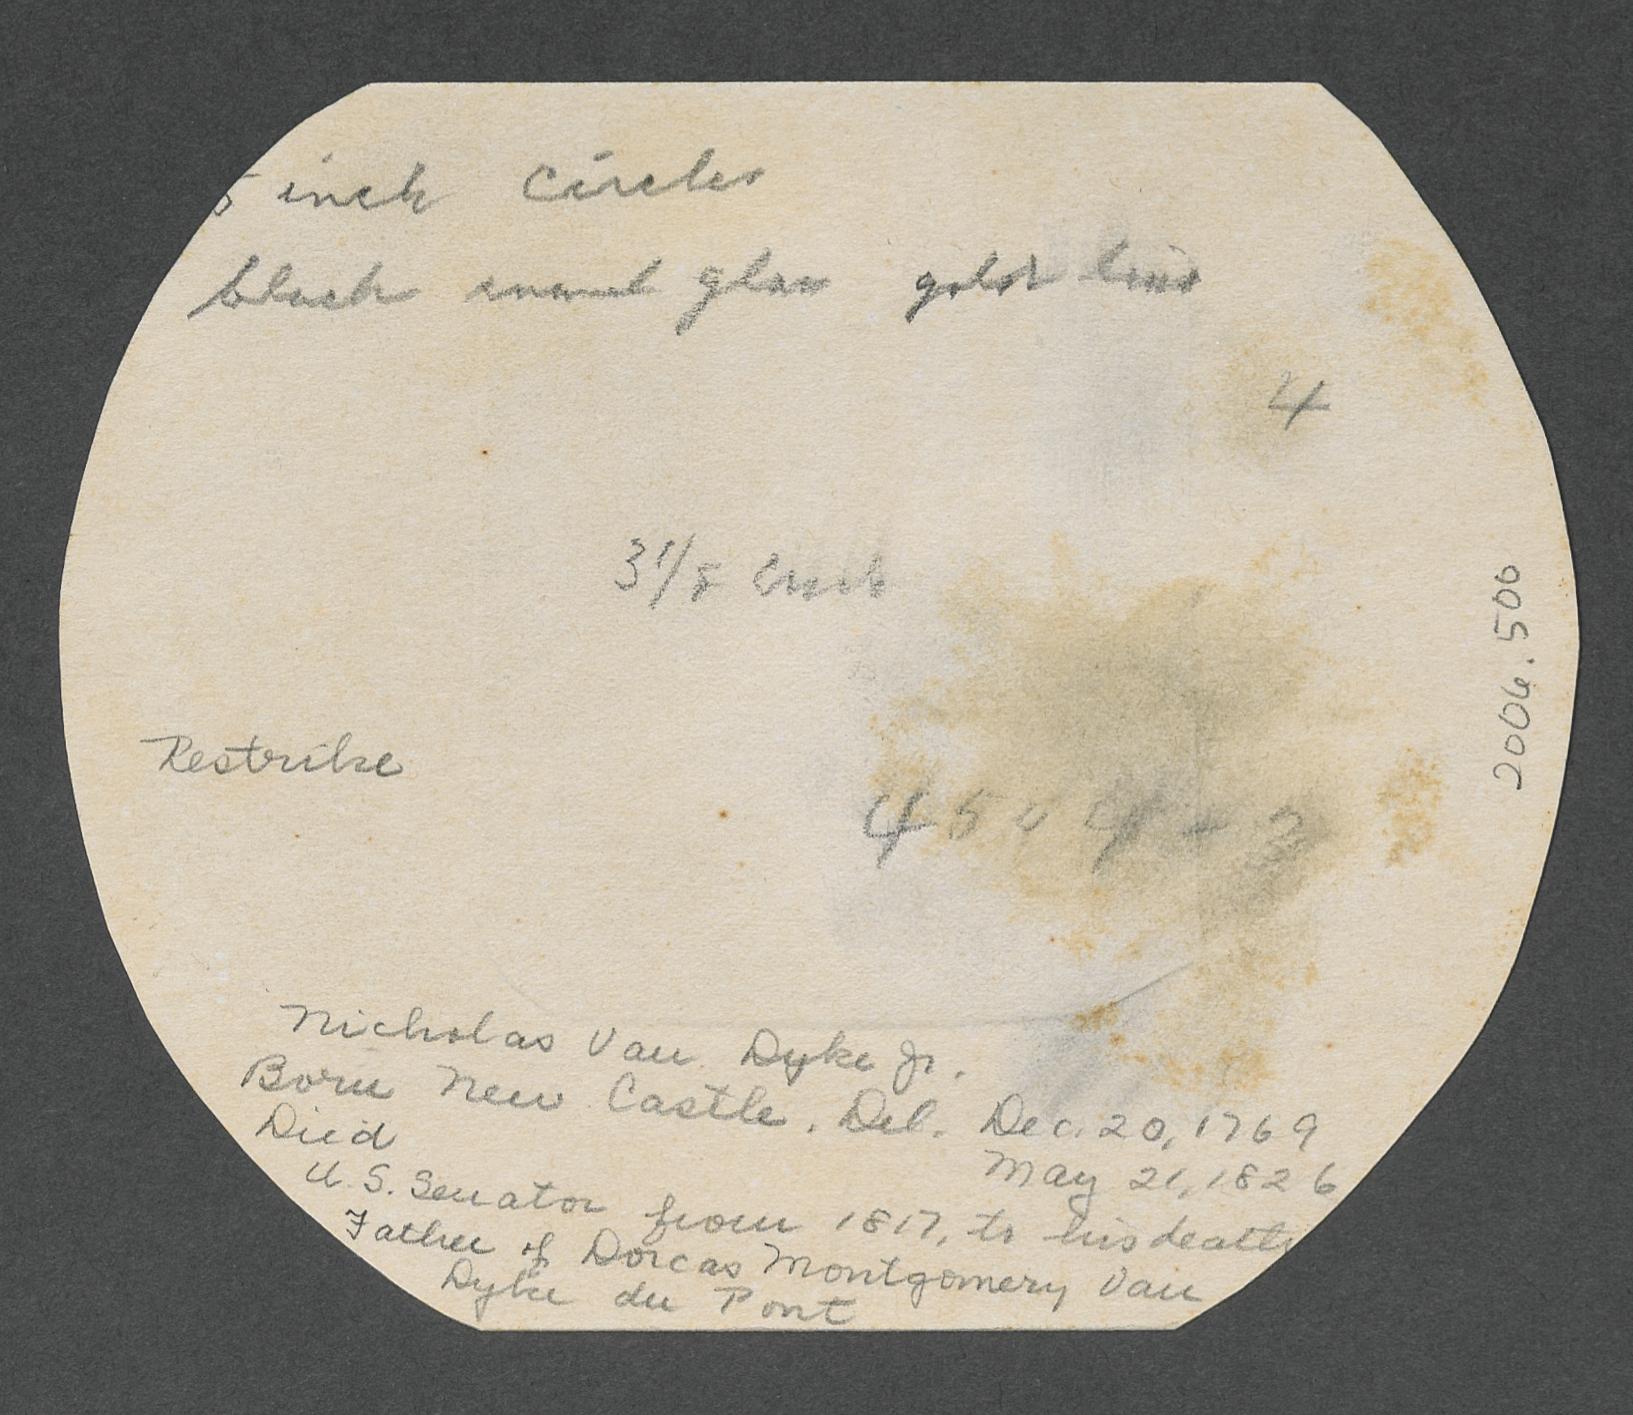 5 inch circles
black enamel glass gold line
4
3 1/8 inch
Restrike
4544-2
2006.500
Nicholas Van Dyke Jr.
Born New Castle, Del. Dec. 20, 1769
Died May 21, 1826
U.S. Senator from 1817, to his death
Father of Dorcas Montgomery Van
Dyke du Pont